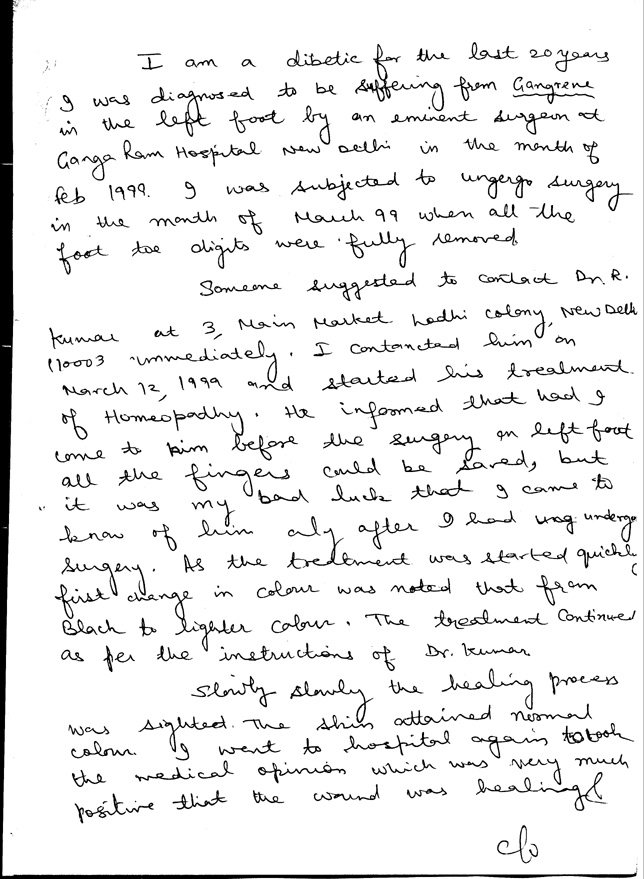 I am a dibetic for the last 20 years
I was diagnosed to be suffering from Gangrene
in the left foot by an eminent surgeon at
Ganga Ram Hospital New Delhi in the month of
Feb 1999. I was subjected to undergo surgery
in the month of March 99 when all the
foot toe digits were fully removed.
Someone suggested to contact Dr. R.
Kumar at 3, Main Market Lodhi Colony, New Delh
110003 immediately. I contancted him on
March 12, 1999 and started his treatment
of Homeopathy. He informed that had I
come to him before the surgery on left foot
all the fingers could be saved, but
it was my bad luck that I came to
know of him only after I had undergo
surgery. As the treatment was started quickl
first change in colour was noted that from
Black to lighter colour. The treatment continued
as per the instructions of Dr. Kumar.
Slowly slowly the healing process
was sighted. The skin attained normal
colour. I went to hospital again to took
the medical opinion which was very much
positive that the wound was healing
c/o